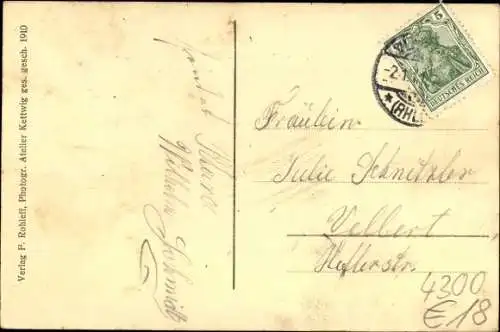 Verlag F. Rohleff, Photogr. Atelier Kettwig ges. gesch. 1910
Wilhelm Schmidt
5
DEUTSCHES REICH
-2.1
(RHL
Fräulein
Julie Schnitzler
Velbert
Heflerstr.
4300
€18